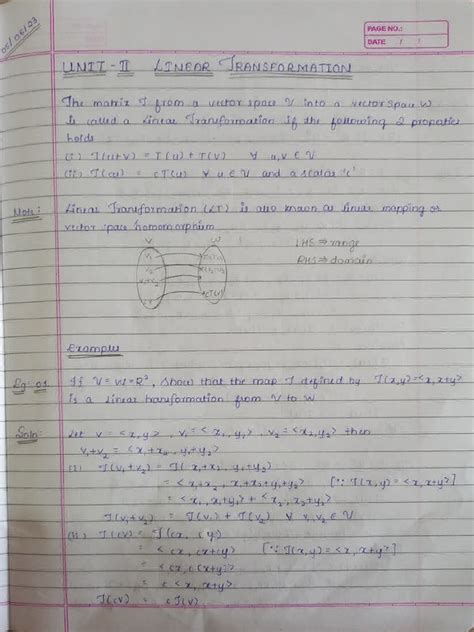 05/06/23
PAGE NO.:
DATE / /
UNIT - II LINEAR TRANSFORMATION
The matrix T from a vector space V into a vector space W
is called a Linear Transformation if the following 2 properties
holds
(i) T(u+v) = T(u) + T(v) ∀ u,v ∈ V
(ii) T(cu) = cT(u) ∀ u ∈ V and a scalar 'c'
Note: Linear Transformation (LT) is also known as linear mapping or
vector space homomorphism
V W
LHS ⇒ range
RHS ⇒ domain
v₁ T(v₁)
v₂ T(v₂)
v₁+v₂
cv cT(v)
Examples
Eg: 01. If V = W = R², show that the map T defined by T(x,y) = <x, x+y>
is a linear transformation from V to W
Soln: Let v = <x,y>, v₁ = <x₁, y₁>, v₂ = <x₂, y₂> then
v₁+v₂ = <x₁+x₂, y₁+y₂>
(i) T(v₁+v₂) = T(x₁+x₂, y₁+y₂)
= <x₁+x₂, x₁+x₂+y₁+y₂> [∵ T(x,y) = <x, x+y>]
= <x₁, x₁+y₁> + <x₂, x₂+y₂>
T(v₁+v₂) = T(v₁) + T(v₂) ∀ v₁,v₂ ∈ V
(ii) T(cv) = T(cx, cy)
= <cx, cx+cy> [∵ T(x,y) = <x, x+y>]
= <cx, c(x+y)>
= c<x, x+y>
T(cv) = cT(v)